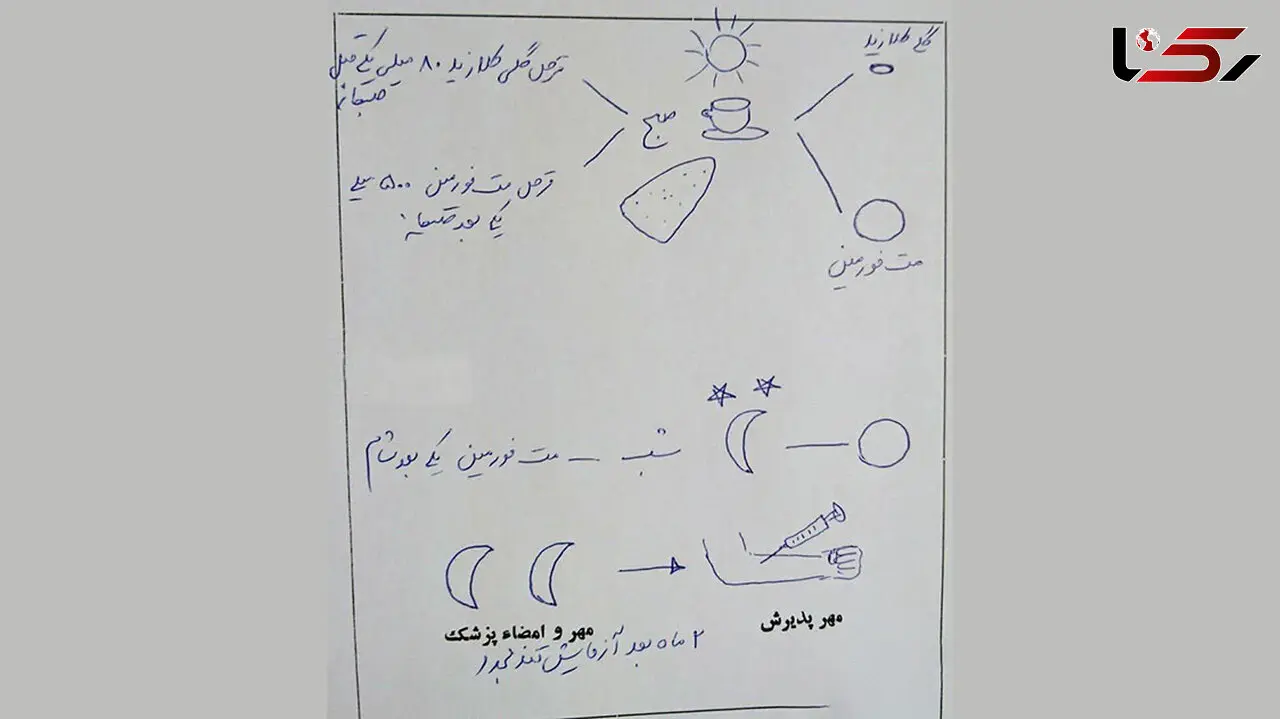 رکنا
گلی کلازید
قرص گلی کلازید ۸۰ میلی یکی قبل
صبحانه
صبح
قرص مت فورمین ۵۰۰ میلی
یکی بعد صبحانه
مت فورمین
شب – مت فورمین یکی بعد شام
مهر پذیرش
مهر و امضاء پزشک
۲ ماه بعد آزمایش قند